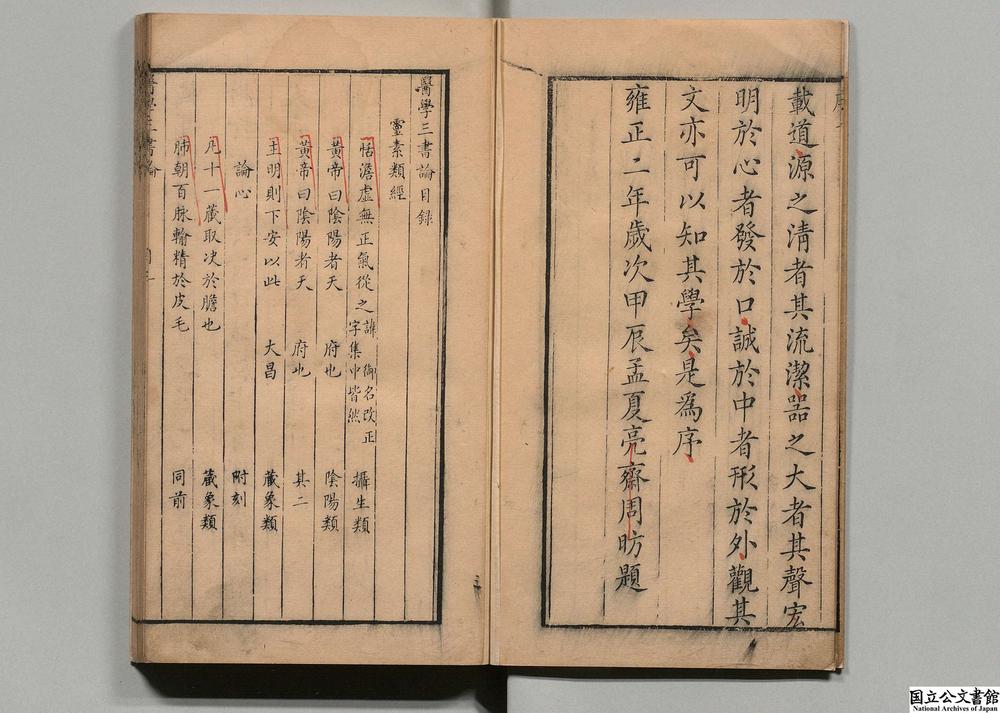 載道源之清者其流潔器之大者其聲宏
明於心者發於口誠於中者形於外觀其
文亦可以知其學矣是為序
雍正二年歲次甲辰孟夏亮齋周昉題
醫學三書論目錄
靈素類經
恬澹虛無正氣從之 諱御名改正字集中皆然 攝生類
黃帝曰陰陽者天 府也 陰陽類
黃帝曰陰陽者天 府也 其二
主明則下安以此 大昌 藏象類
論心 附刻
凡十一藏取决於膽也 藏象類
肺朝百脉輸精於皮毛 同前
国立公文書館
National Archives of Japan